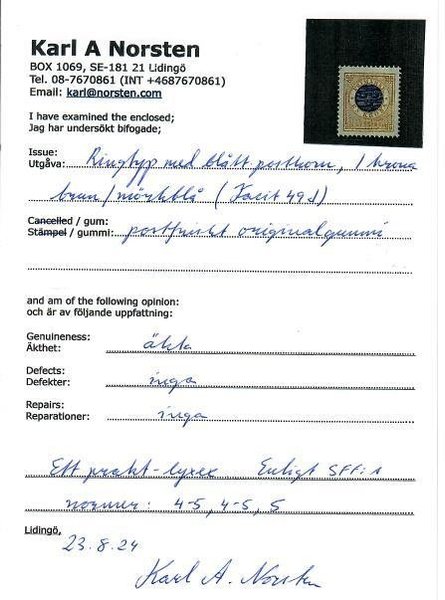 Karl A Norsten
BOX 1069, SE-181 21 Lidingö
Tel. 08-7670861 (INT +4687670861)
Email: karl@norsten.com
I have examined the enclosed;
Jag har undersökt bifogade;
Issue:
Utgåva: Ringtyp med blått posthorn, 1 krona
brun/mörkblå (Facit 49d)
Cancelled / gum:
Stämpel / gummi: postfriskt originalgummi
and am of the following opinion:
och är av följande uppfattning:
Genuineness:
Äkthet: äkta
Defects:
Defekter: inga
Repairs:
Reparationer: inga
Ett prakt-lyxex Enligt SFF:s
normer: 4-5, 4-5, 5
Lidingö,
23.8.24
Karl A. Norsten